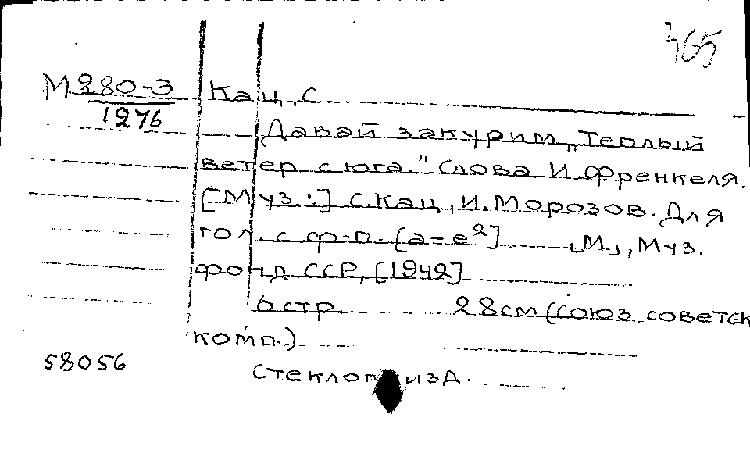 465
М280-3 Кац, С
1276
Давай закурим, "Теплый
ветер с юга." Слова И Френкеля.
[Муз:] С. Кац, И. Морозов. Для
гол. с ф-п. [а-е²] М, Муз.
фонд СССР, [1942]
6 стр 28см (Союз советск
комп.)
58056 Стеклогр изд.